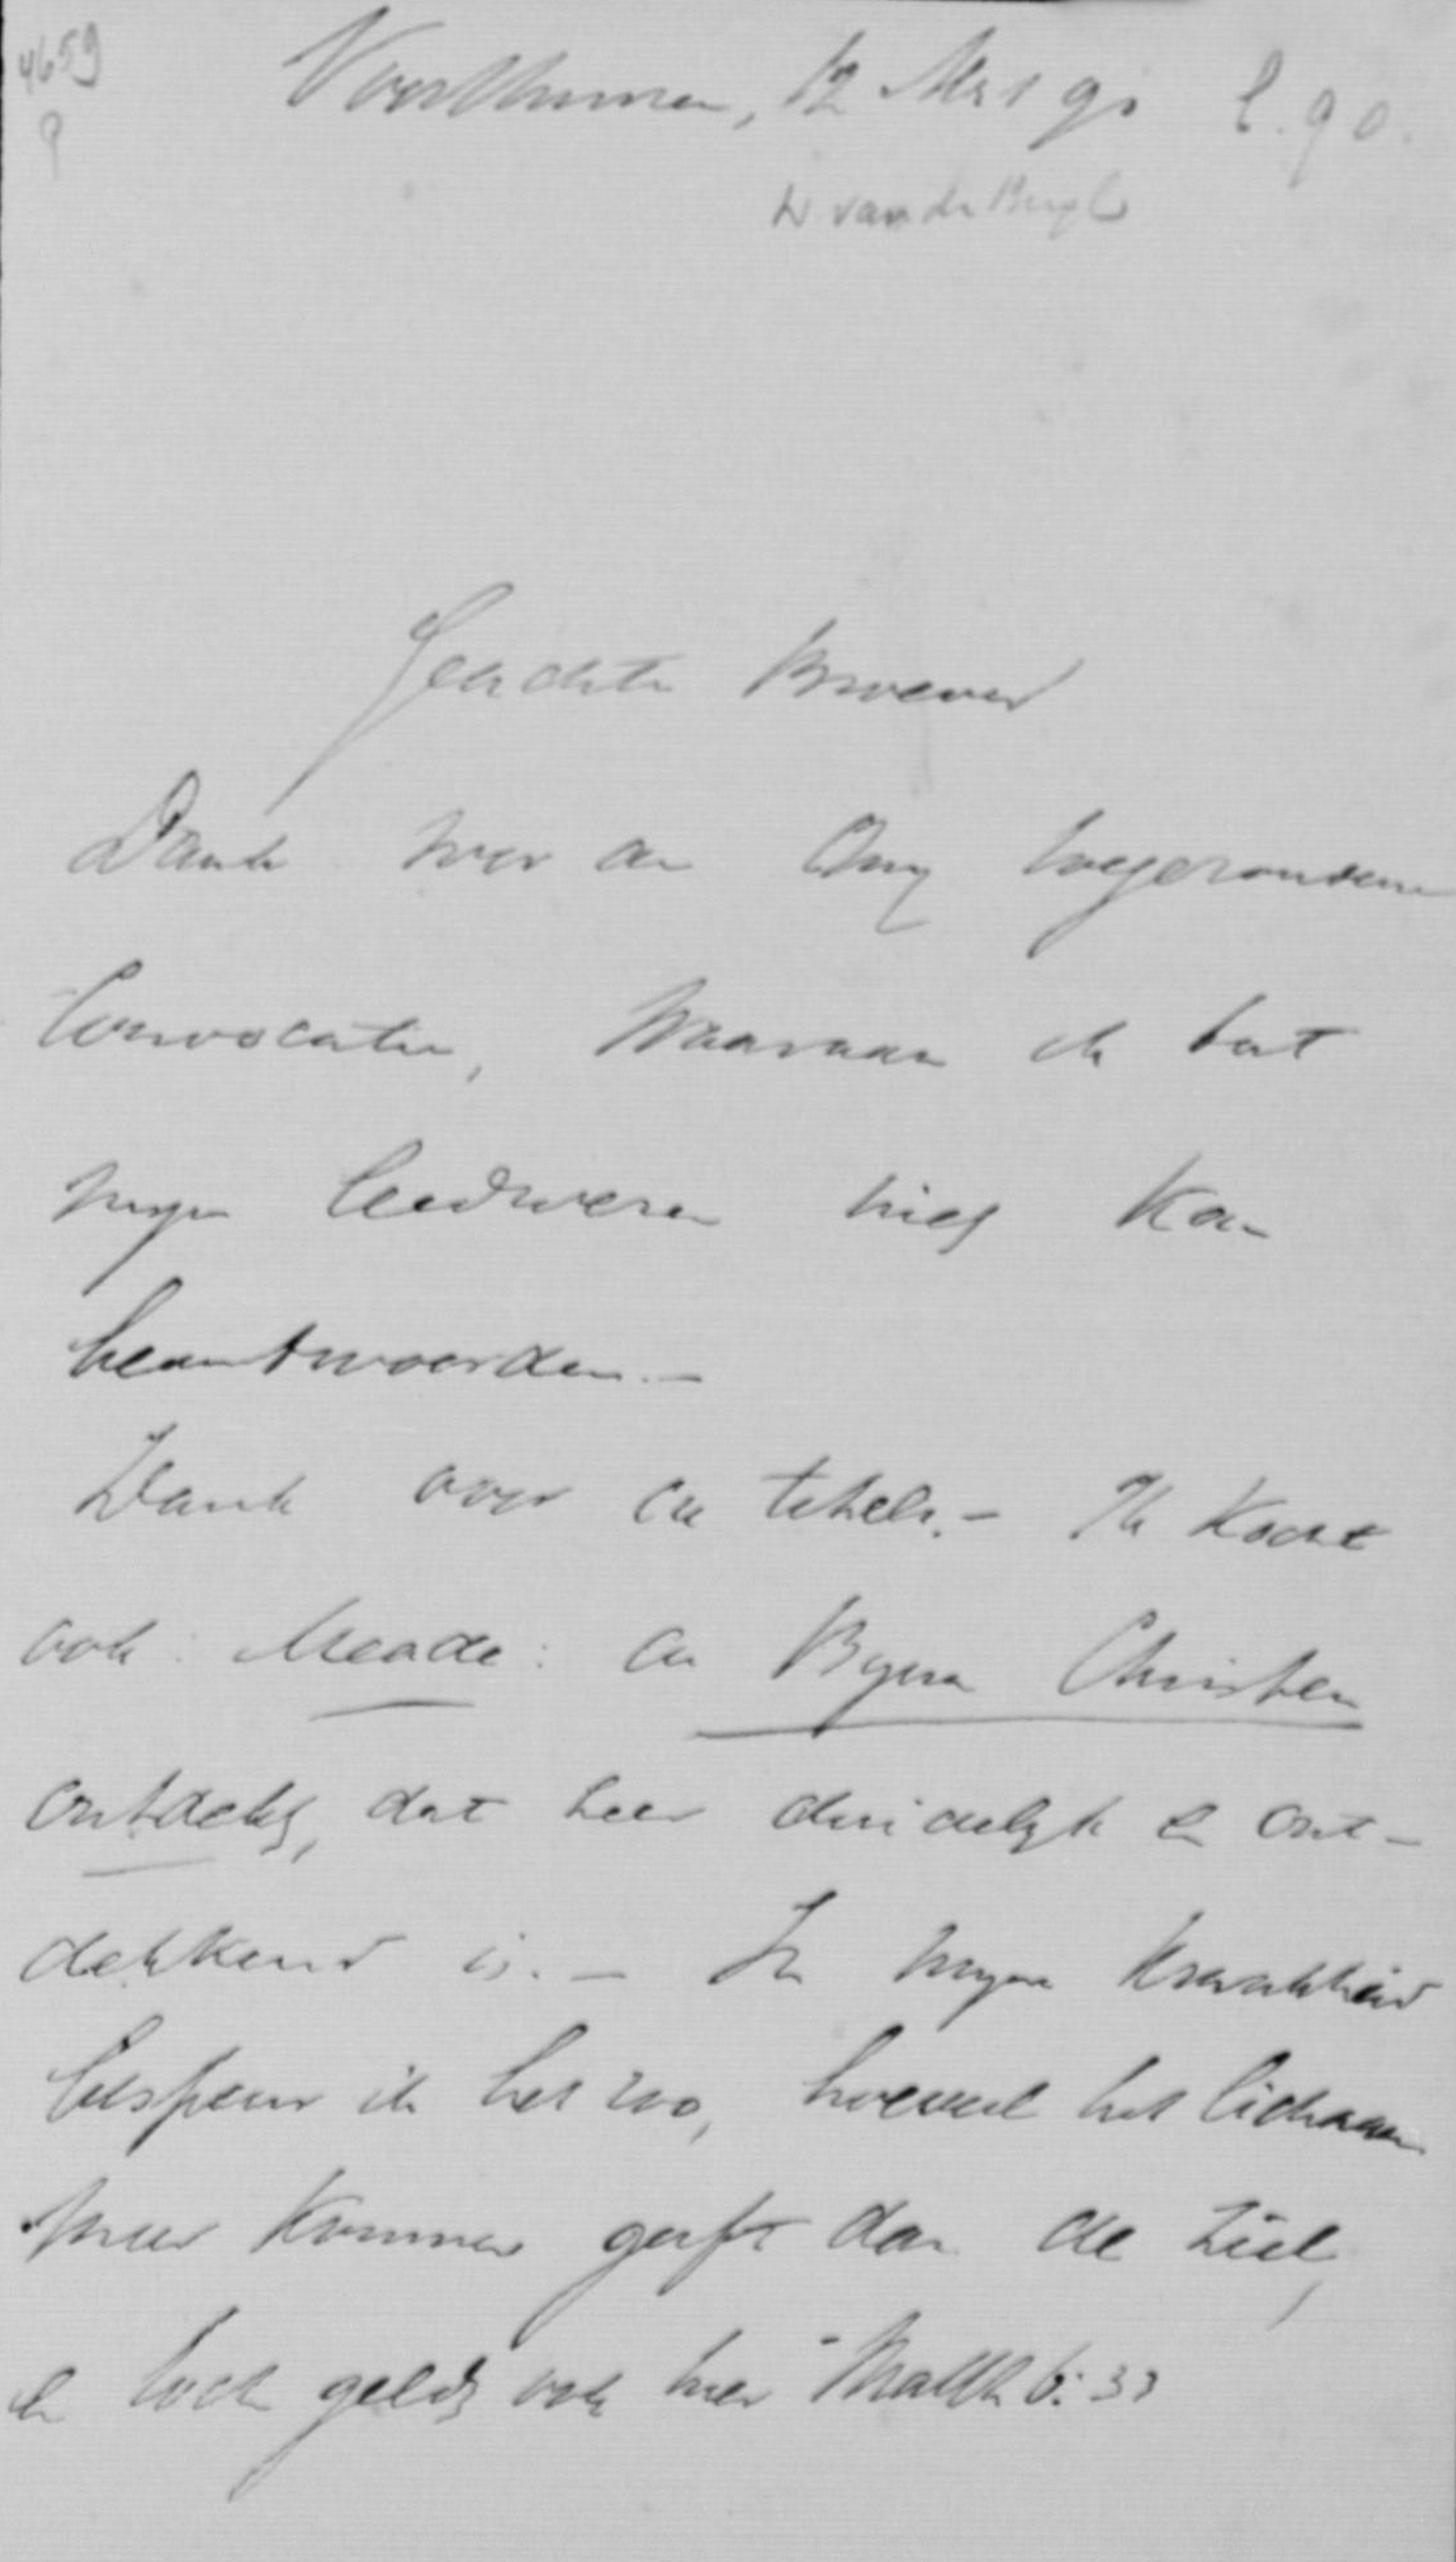 4659
Voorthuizen, 12 Mrt 90 E.90.
W van den Bergh
Geachte Broeder
Dank voor de Ons toegezondene
Convocatie, waaraan ik tot
mijn leedwezen niet kan
beantwoorden.—
Dank voor de tekels.— Ik kocht
ook: Meade: de Bijna Christen
ontdekt, dat zeer duidelijk & ont-
dekkend is.— In mijne krankheid
bespeur ik het zoo, hoeveel het lichaam
meer kommer geeft dan de ziel,
& toch geldt ook hier Matth 6:33